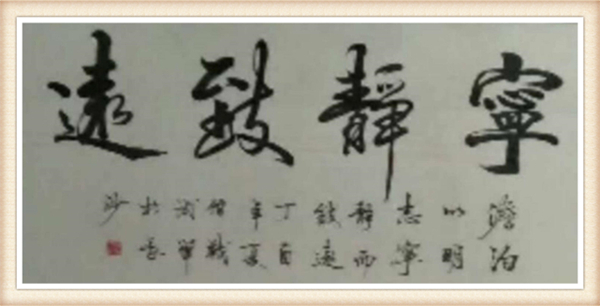 寧靜致遠
澹泊
以明
志寧
靜而
致遠
丁酉
年夏
於長
沙